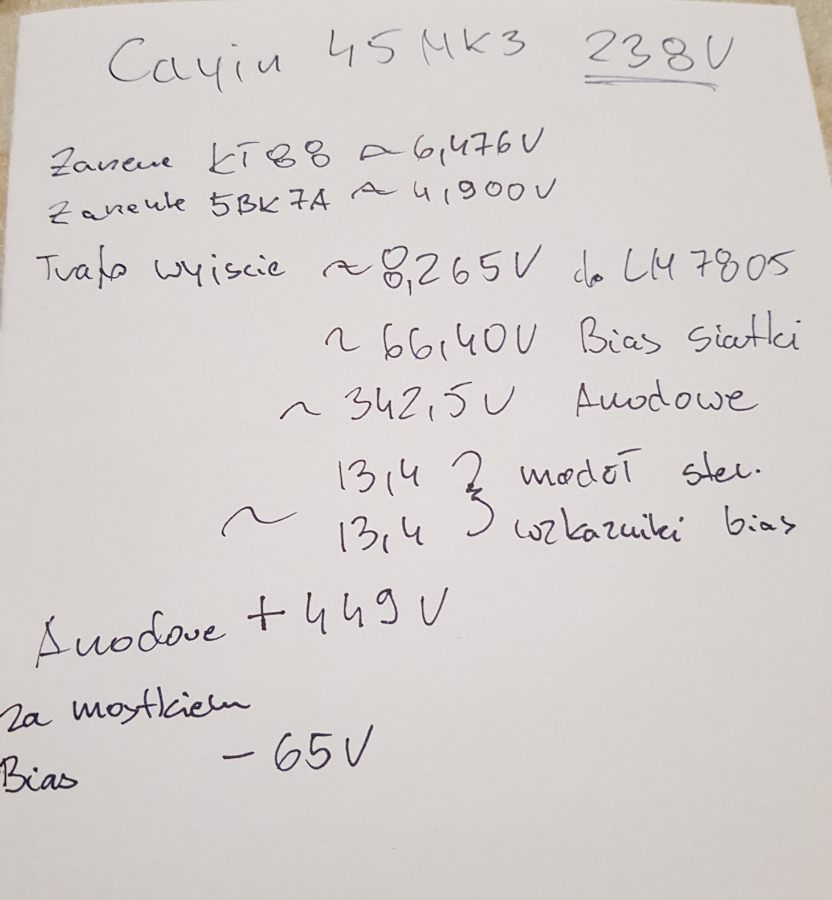 Cayin 45 MK3 238V
Żarzenie KT88 ~ 6,476V
Żarzenie 5BK7A ~ 4,900V
Trafo wyjscie ~ 8,265V do LM7805
~ 66,40V Bias siatki
~ 342,5V Anodowe
13,4 } moduł ster.
~ 13,4 wzkazniki bias
Anodowe + 449V
za mostkiem
Bias - 65V